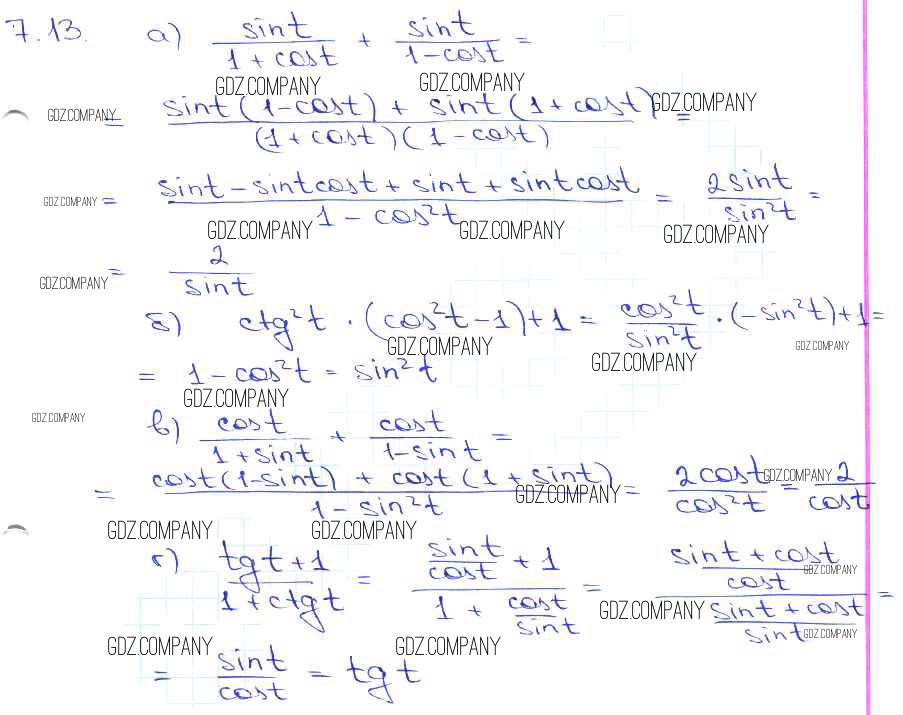 7.13. а) sint / 1 + cost + sint / 1 - cost =
GDZ.COMPANY GDZ.COMPANY
GDZ.COMPANY = sint (1 - cost) + sint (1 + cost) / (1 + cost)(1 - cost) = GDZ.COMPANY
GDZ.COMPANY = sint - sintcost + sint + sintcost / 1 - cos²t = 2sint / sin²t =
GDZ.COMPANY GDZ.COMPANY GDZ.COMPANY
GDZ.COMPANY = 2 / sint
б) ctg²t · (cos²t - 1) + 1 = cos²t / sin²t · (-sin²t) + 1 =
GDZ.COMPANY GDZ.COMPANY GDZ.COMPANY
= 1 - cos²t = sin²t
GDZ.COMPANY
GDZ.COMPANY в) cost / 1 + sint + cost / 1 - sint =
= cost (1 - sint) + cost (1 + sint) / 1 - sin²t = 2cost / cos²t = 2 / cost
GDZ.COMPANY GDZ.COMPANY
GDZ.COMPANY GDZ.COMPANY
г) tgt + 1 / 1 + ctgt = sint / cost + 1 / 1 + cost / sint = sint + cost / cost / sint + cost / sint =
GDZ.COMPANY GDZ.COMPANY GDZ.COMPANY
GDZ.COMPANY GDZ.COMPANY
= sint / cost = tgt